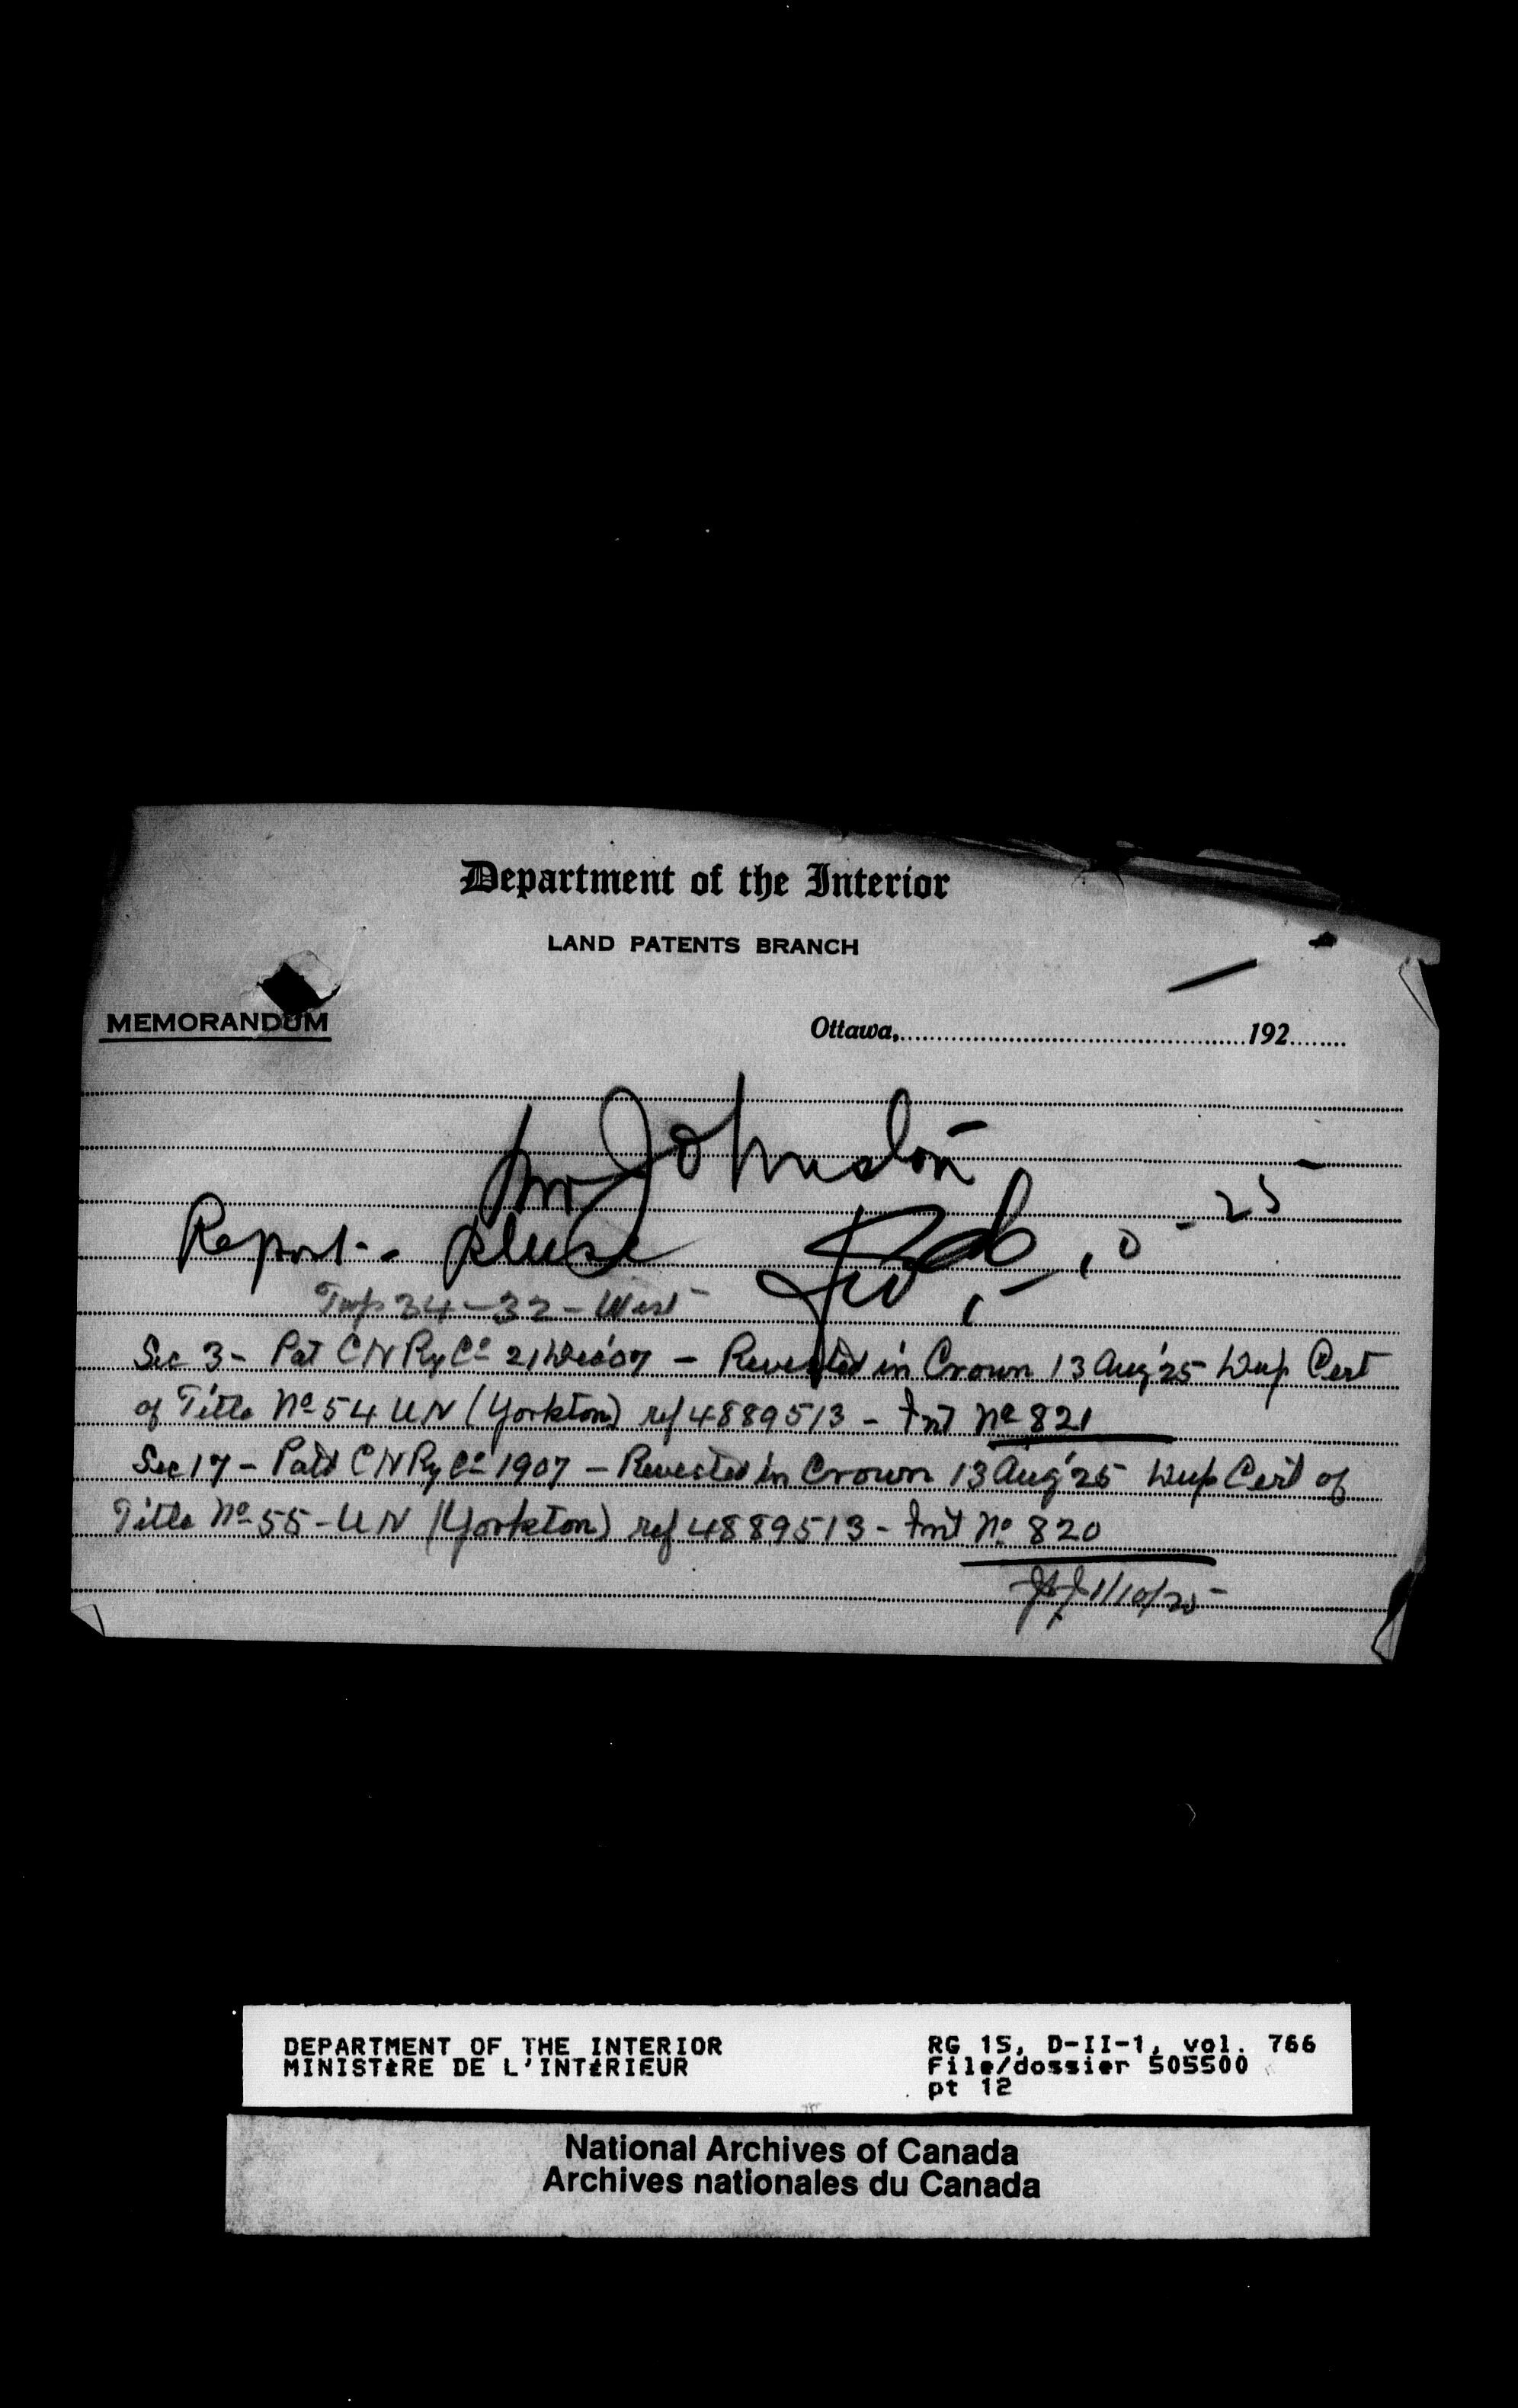 Department of the Interior
LAND PATENTS BRANCH
MEMORANDUM
Ottawa,.................192......
Mr Johnston
Report please
1-10-25
Twp 34-32-West
Sec 3 - Pat CNRy Co 21 Dec '07 - Revested in Crown 13 Aug '25 Dup Cert
of Title No 54 UN (Yorkton) ref 4889513 - Int No 821
Sec 17 - Patd CNRy Co 1907 - Revested in Crown 13 Aug '25 Dup Cert of
Title No 55-UN (Yorkton) ref 4889513 - Int No 820
1/10/25
DEPARTMENT OF THE INTERIOR RG 15, D-II-1, vol. 766
MINISTÈRE DE L'INTÉRIEUR File/dossier 505500
pt 12
National Archives of Canada
Archives nationales du Canada